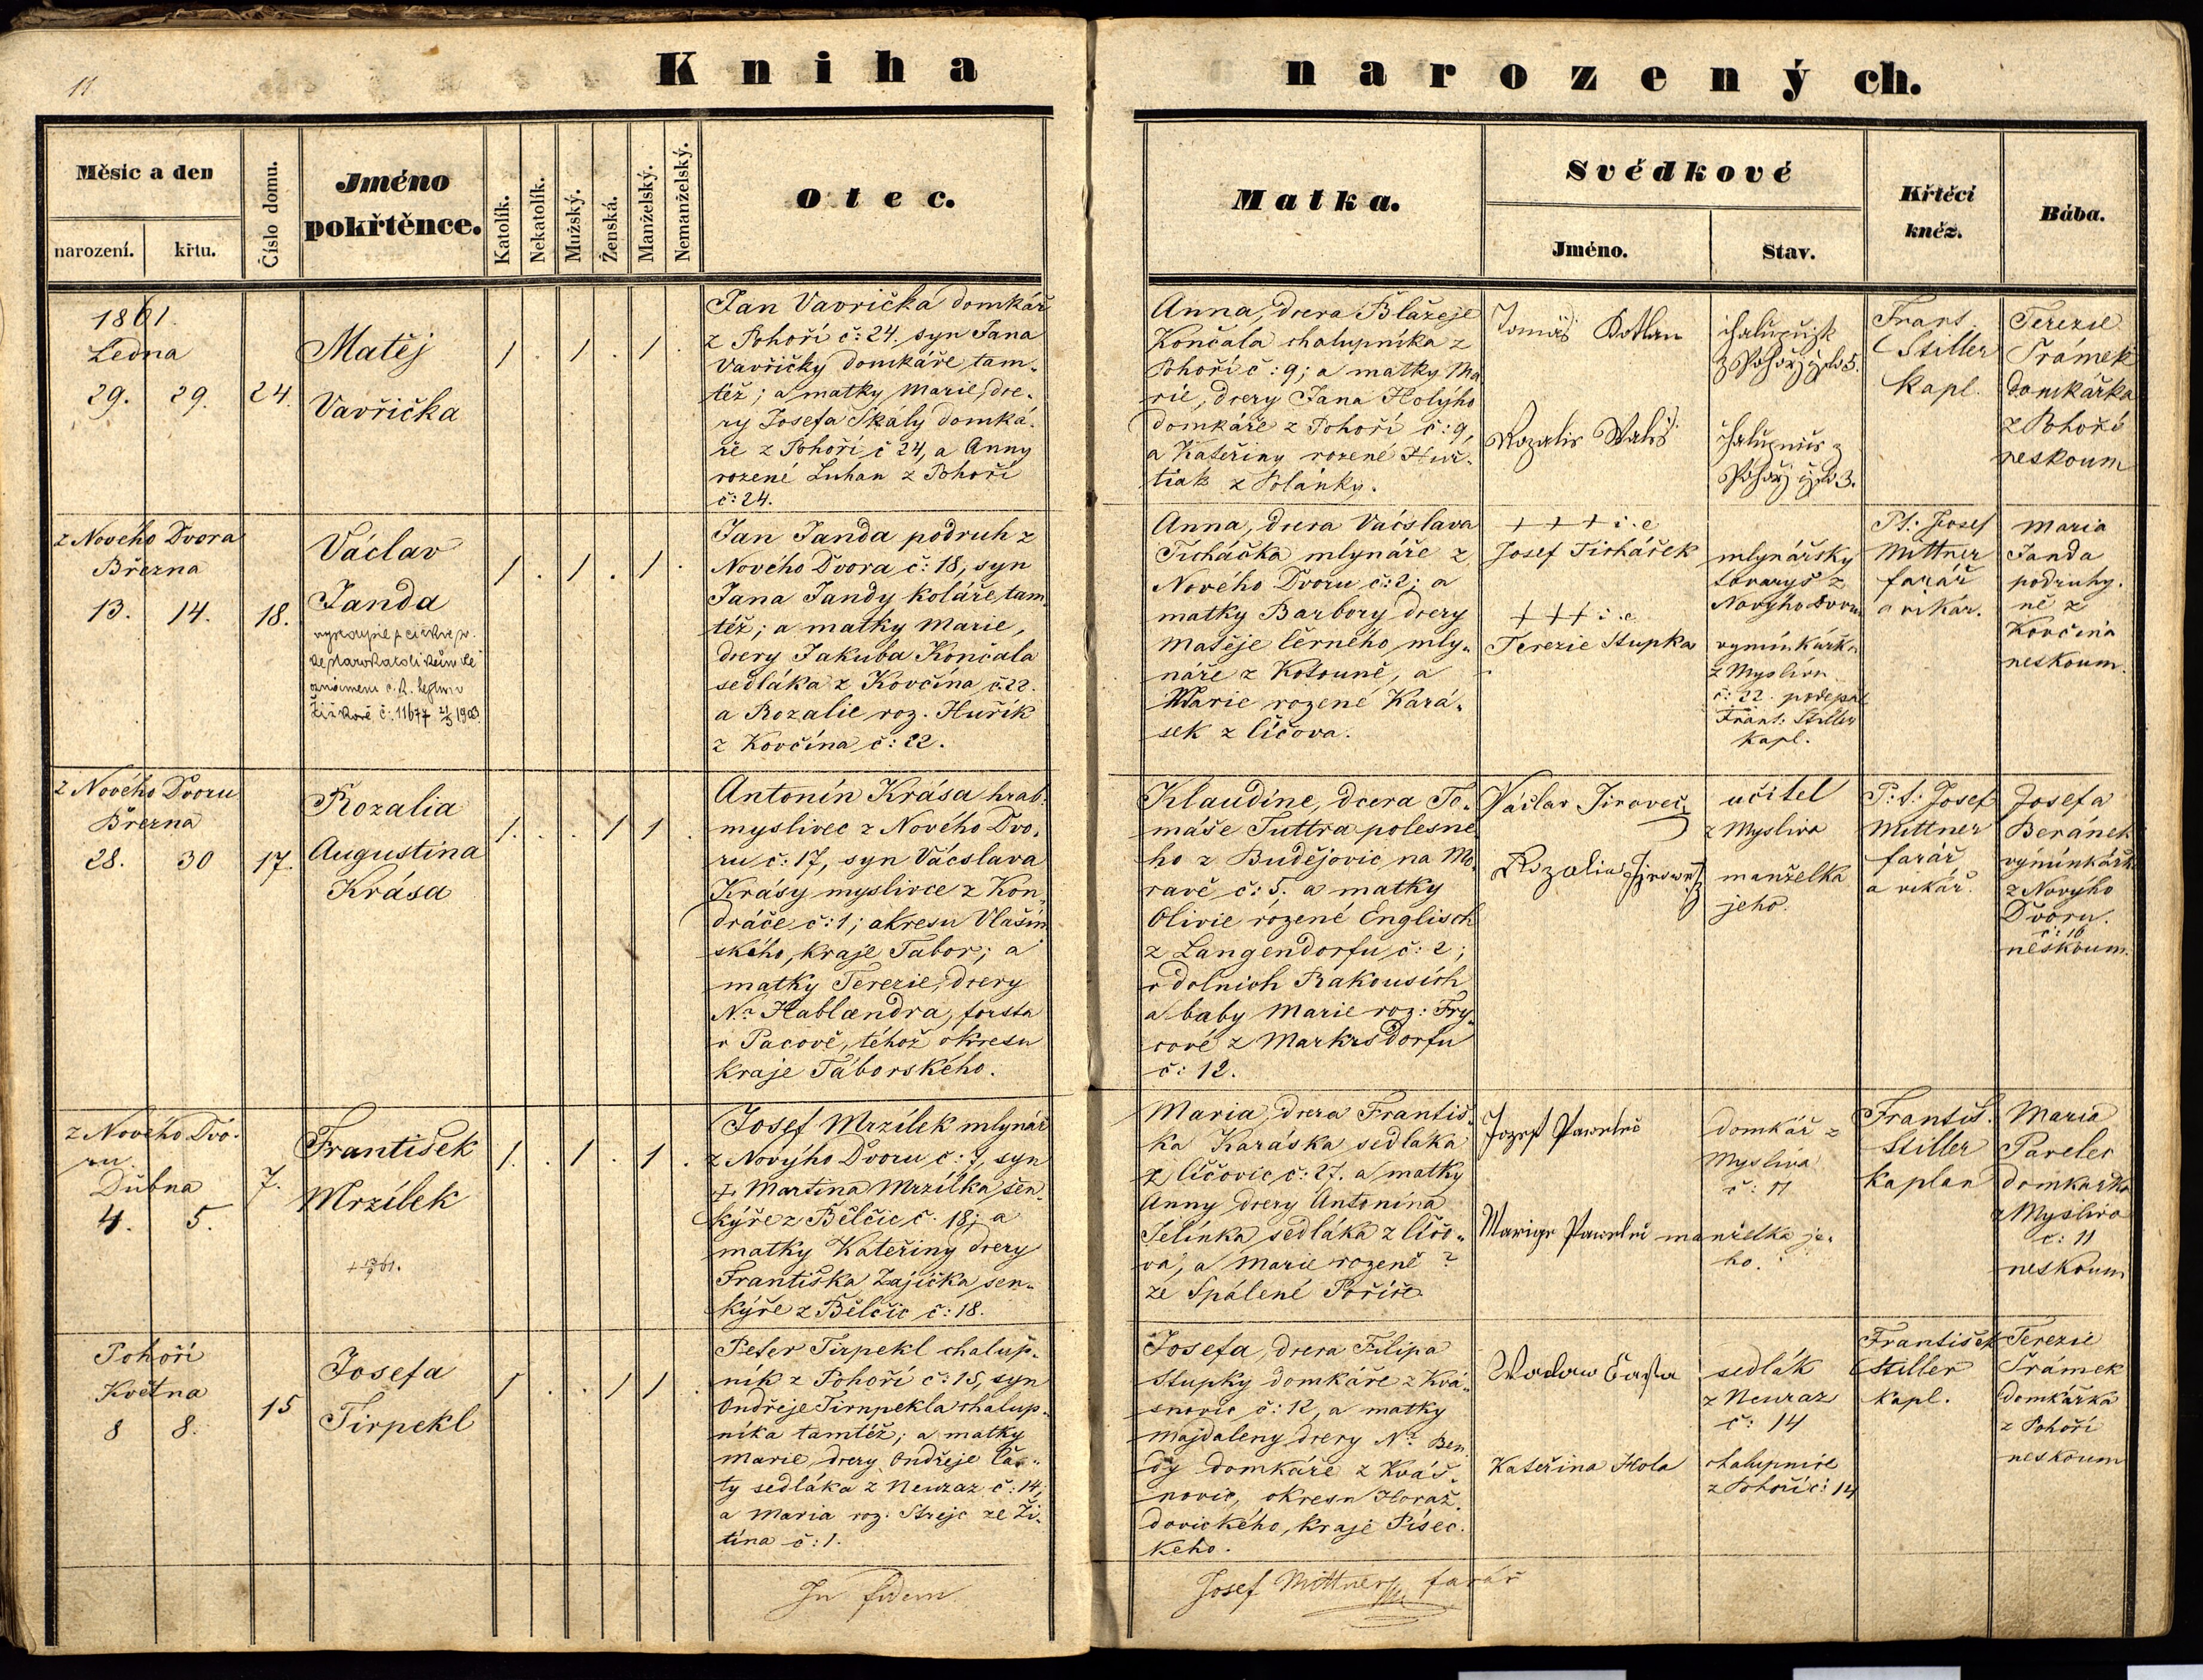 11
Kniha narozených.
Měsíc a den
narození.
křtu.
Číslo domu.
Jméno
pokřtěnce.
Katolík.
Nekatolík.
Mužský.
Ženská.
Manželský.
Nemanželský.
Otec.
Matka.
Svědkové
Jméno.
Stav.
Křtěcí
kněz.
Bába.
1861.
Ledna
29. 29. 24.
Matěj
Vavřička
1 . 1 . 1 .
Jan Vavřička domkář
z Pohoří č: 24. syn Jana
Vavřičky domkáře tam-
též; a matky Marie, dce-
ry Josefa Skály domká-
ře z Pohoří č 24, a Anny
rozené Luhan z Pohoří
č: 24.
Anna, dcera Blažeje
Končala chalupníka z
Pohoří č: 9; a matky Ma
rie, dcery Jana Holýho
domkáře z Pohoří č: 9,
a Kateřiny rozené
z Polánky.
Tomáš Kotlan
Rozalie
Frant.
Stiller
Kapl.
Terezie
Šrámek
domkářka
z Pohoří
neskoum
z Nového Dvora
Března
13. 14. 18.
Václav
Janda
č. 11677 1903
1 . 1 . 1 .
Jan Janda podruh z
Nového Dvora č: 18, syn
Jana Jandy koláře tam
též; a matky Marie,
dcery Jakuba Končala
sedláka z Kovčína č. 22.
a Rozalie roz. Huřík
z Kovčína č: 22.
Anna, dcera Václava
Ticháčka mlynáře z
Nového Dvoru č: 2; a
matky Barbory dcery
Matěje Černého mly-
náře z Kotouně, a
Marie rozené Kará-
sek z Číčova.
+ + + i. e
Josef Ticháček
+ + + i. e
Terezie Stupka
mlynářský
tovaryš z
Novýho Dvoru
výminkářka
z Myslíva
č: 22. podepsal
Frant: Stiller
Kapl.
Pt: Josef
Mittner
farář
a vikář.
Maria
Janda
podruhy-
ně z
Kovčína
neskoum.
z Nového Dvoru
Března
28. 30 17.
Rozalia
Augustina
Krása
1 . . 1 1 .
Antonín Krása hrab.
myslivec z Nového Dvo-
ru č: 17, syn Václava
Krásy myslivce z Kon-
dráče č: 1; okresu Vlašim
ského, kraje Tabor; a
matky Terezie, dcery
Na Hablaendra, forsta
v Pacově, téhož okresu
kraje Táborského.
Klaudine, dcera To-
máše Tuttra polesné
ho z Budějovic na Mo-
ravě č: 5. a matky
Olivie rozené Englisch
z Langendorfu č: 2;
v dolních Rakousích
a baby Marie roz: Fry-
cové z Markrsdorfu
č: 12.
Václav Jirovec
Rozalia
učitel
z Myslíva
manželka
jeho.
P: t: Josef
Mittner
farář
a vikář.
Josefa
Beránek
výminkářka
z Novýho
Dvoru.
č: 16
neskoum.
z Nového Dvo-
ru.
Dubna
4. 5. 7.
František
Mrzílek
1. . 1 . 1 .
Josef Mrzílek mlynář
z Novýho Dvoru č: 7, syn
† Martina Mrzílka šen-
kýře z Bělčic č. 18; a
matky Kateřiny dcery
Františka Zajíčka šen-
kýře z Bělčic č: 18.
Maria, dcera Františ-
ka Karáska sedláka
z Číčovic č: 27. a matky
Anny dcery Antonína
Jelínka sedláka z Číčo-
va, a Marie rozené ?
ze Spálené Poříče
Jozef Pawelec
Marige Pawelec
domkář z
Myslíva
č: 11
manželka je-
ho.
Františ.
Stiller
kaplan
Maria
Pavelec
domkářka
z Myslíva
č: 11
neskoum
Pohoří
Května
8 8. 15
Josefa
Tirpekl
1 . . 1 1 .
Peter Tirpekl chalup-
ník z Pohoří č: 15, syn
Ondřeje Tirnpekla chalup-
níka tamtéž; a matky
Marie, dcery Ondřeje Čas-
ty sedláka z Neuraz č: 14,
a Maria roz. Strejc ze Ži-
tína č: 1.
Josefa, dcera Filipa
Stupky domkáře z Kvá-
snovic č: 12, a matky
Majdaleny dcery Na Ben
dy domkáře z Kváš-
novic, okresu Horaž-
dovického, kraje Písec-
kého.
Waclaw Časta
Kateřina Hola
sedlák
z Neuraz
č: 14
chalupnice
z Pohoří č: 14
František
Stiller
Kapl.
Terezie
Šrámek
domkářka
z Pohoří
neskoum
In fidem
Josef Mittner farář